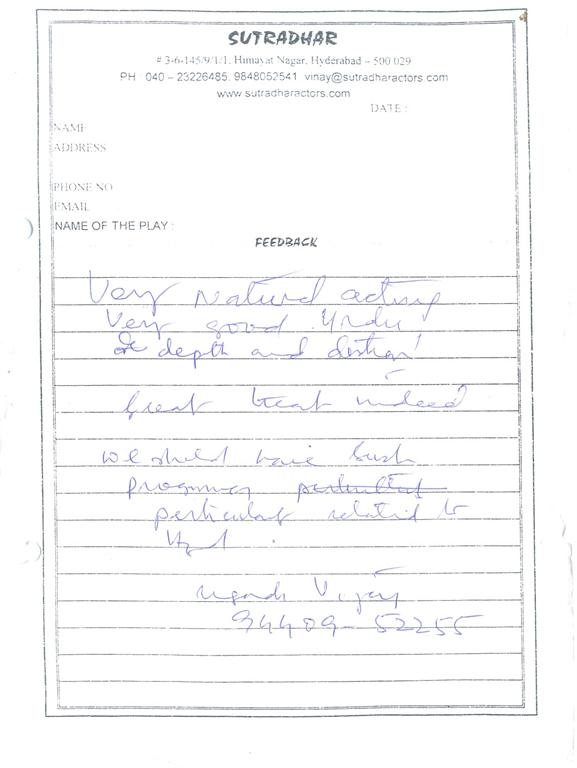 SUTRADHAR
# 3-6-145/9/1/1, Himayat Nagar, Hyderabad – 500 029
PH 040 – 23226485, 9848052541 vinay@sutradharactors.com
www.sutradharactors.com
DATE :
NAME
ADDRESS
PHONE NO
EMAIL
NAME OF THE PLAY :
FEEDBACK
Very natural acting
Very good Urdu
depth and
Great treat indeed
we should have such
programmes
particular related to
Hyd.
Vijay
94409-52255